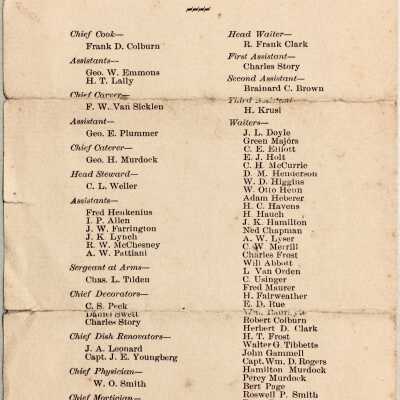 Chief Cook—
Frank D. Colburn
Assistants—
Geo. W. Emmons
H. T. Lally
Chief Carver—
F. W. Van Sicklen
Assistant—
Geo. E. Plummer
Chief Caterer—
Geo. H. Murdock
Head Steward—
C. L. Weller
Assistants—
Fred Henkenius
I. P. Allen
J. W. Farrington
J. K. Lynch
R. W. McChesney
A. W. Pattiani
Sergeant at Arms—
Chas. L. Tilden
Chief Decorators—
C. S. Peck
Daniel Swett
Charles Story
Chief Dish Renovators—
J. A. Leonard
Capt. J. E. Youngberg
Chief Physician—
W. O. Smith
Chief Mortician—
Head Waiter—
R. Frank Clark
First Assistant—
Charles Story
Second Assistant—
Brainard C. Brown
Third Assistant—
H. Krusi
Waiters—
J. L. Doyle
Green Majors
C. E. Elliott
E. J. Holt
C. H. McCurrie
D. M. Henderson
W. D. Higgins
W. Otto Heun
Adam Heberer
H. C. Havens
H. Hauch
J. K. Hamilton
Ned Chapman
A. W. Lyser
C. W. Merrill
Charles Frost
Will Abbott
L. Van Orden
C. Usinger
Fred Maurer
H. Fairweather
E. D. Rue
Wm.
Robert Colburn
Herbert D. Clark
H. T. Frost
Walter G. Tibbetts
John Gammell
Capt. Wm. D. Rogers
Hamilton Murdock
Percy Murdock
Bert Page
Roswell P. Smith